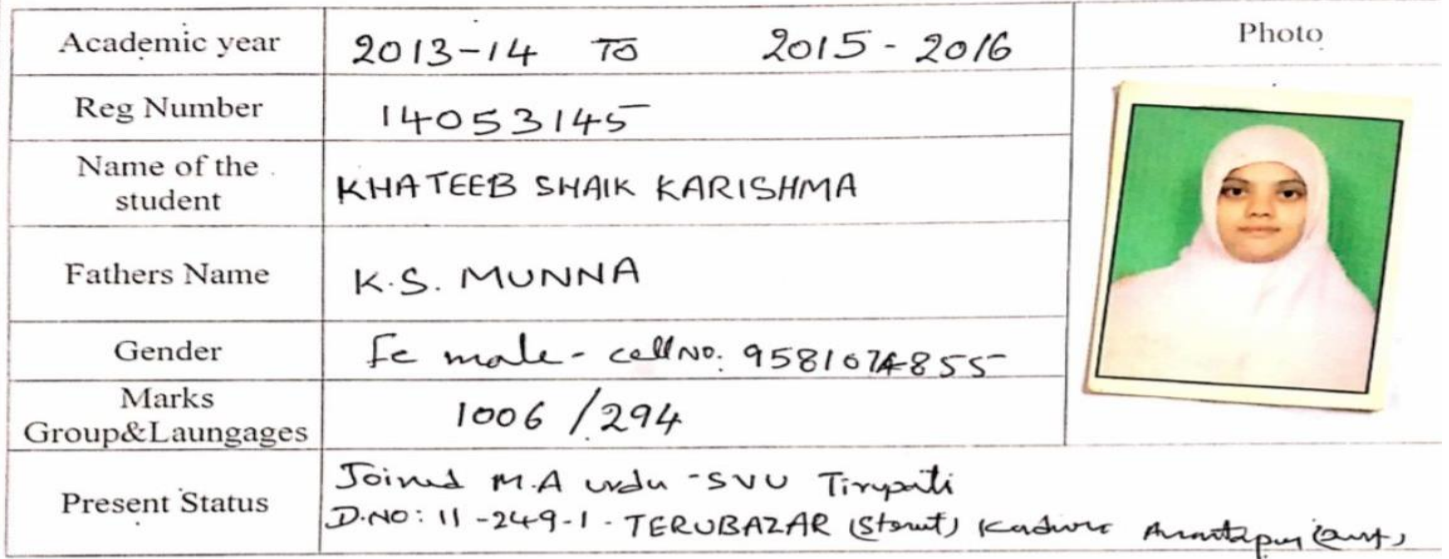 Academic year 2013-14 TO 2015 - 2016 Photo
Reg Number 14053145
Name of the student KHATEEB SHAIK KARISHMA
Fathers Name K.S. MUNNA
Gender Fe male - cell NO: 9581074855
Marks Group&Laungages 1006 / 294
Present Status Joined M.A urdu - SVU Tirupati
D.NO: 11-249-1 - TERUBAZAR (Street) Kadiri Anantapur